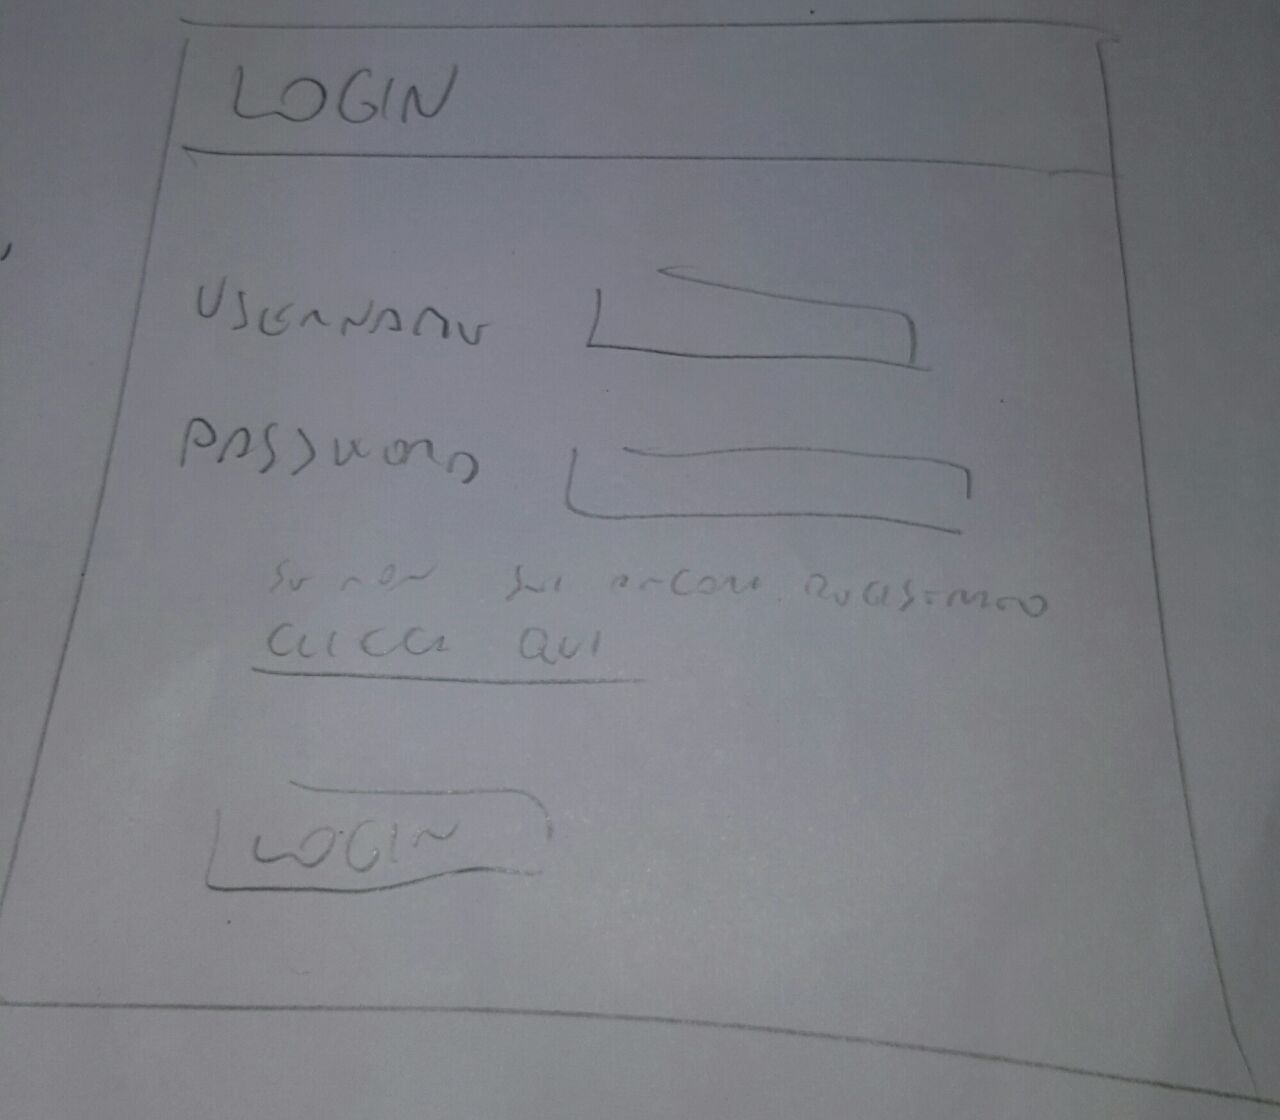 LOGIN
USERNAME
PASSWORD
SE NON SEI ANCORA REGISTRATO
CLICCA QUI
LOGIN